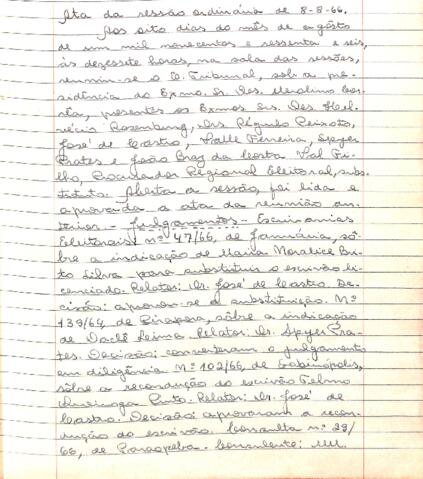 Ata da sessão ordinária de 8-8-66.
Aos oito dias do mês de agôsto
de um mil novecentos e sessenta e seis,
às dezessete horas, na sala das sessões,
reuniu-se o Tribunal, sob a pre-
sidência do Exmo. Sr. Des. Merolino Cor-
rêa, presentes os Exmos Srs. Des. Hel-
vécio Rosenburg, Drs Régulo Peixoto,
José de Castro, Valle Ferreira, Spyer
Prates e João Braz da Costa Val Fi-
lho, Procurador Regional Eleitoral, subs-
tituto. Aberta a sessão, foi lida e
aprovada a ata da reunião an-
terior. - Julgamentos - Escrivanias
Eleitorais: nº 47/66, de Januária, sô-
bre a indicação de Maria Bri-
to Silva para substituir o escrivão li-
cenciado. Relator: Dr. José de Castro. De-
cisão: aprovou-se a substituição. Nº
139/64, de Pirapora, sôbre a indicação
de Lima. Relator: Dr. Spyer Pra-
tes. Decisão: converteram o julgamento
em diligência. Nº 102/66, de Sabinópolis,
sôbre a recondução do escrivão Telmo
Pinto. Relator: Dr. José de
Castro. Decisão: aprovaram a recon-
dução do escrivão. Consulta nº 29/
66, de Paraopeba. Consulente: